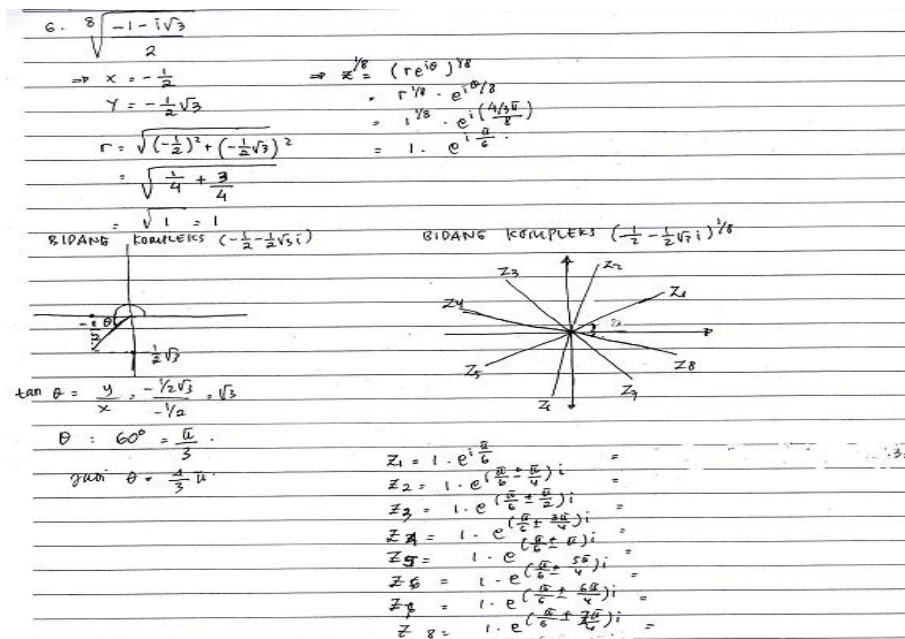 6. ⁸√((-1 - i√3)/2)
⇒ x = -1/2
Y = -1/2 √3
r = √((-1/2)² + (-1/2 √3)²)
= √(1/4 + 3/4)
= √1 = 1
⇒ z^(1/8) = (re^(iθ))^(1/8)
= r^(1/8) · e^(iθ/8)
= 1^(1/8) · e^(i(4/3π/8))
= 1 · e^(i π/6) .
BIDANG KOMPLEKS (-1/2 - 1/2 √3 i)
θ
1/2 √3
tan θ = y/x = (-1/2 √3)/(-1/2) = √3
θ : 60° = π/3 .
jadi θ = 4/3 π
BIDANG KOMPLEKS (-1/2 - 1/2 √3 i)^(1/8)
Z3 Z2
Z4 Z1
Z5 Z8
Z6 Z7
Z1 = 1 · e^(i π/6) =
Z2 = 1 · e^((π/6 ± π/4)i) =
Z3 = 1 · e^((π/6 ± π/2)i) =
Z4 = 1 · e^((π/6 ± 3π/4)i) =
Z5 = 1 · e^((π/6 ± π)i) =
Z6 = 1 · e^((π/6 ± 5π/4)i) =
Z7 = 1 · e^((π/6 ± 6π/4)i) =
Z8 = 1 · e^((π/6 ± 7π/4)i) =